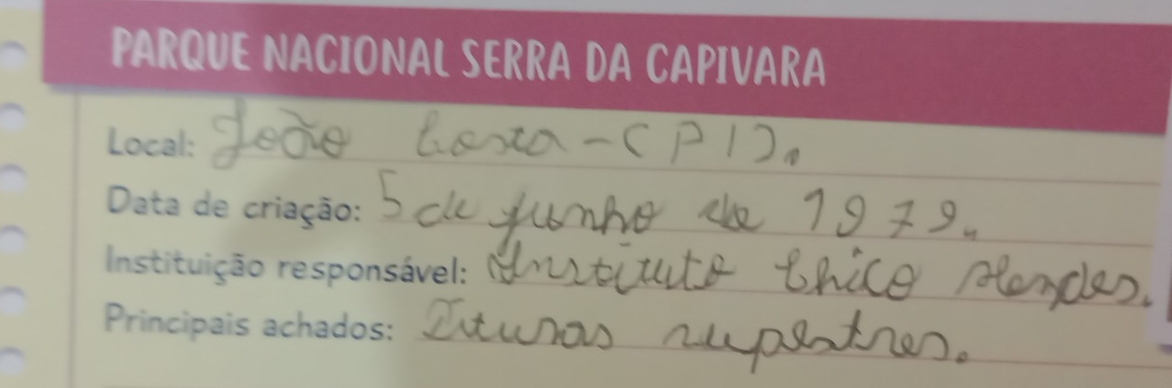 PARQUE NACIONAL SERRA DA CAPIVARA
Local: João Costa - (PI).
Data de criação: 5 de junho de 1979.
Instituição responsável: Instituto Chico Mendes.
Principais achados: Pituras rupestres.